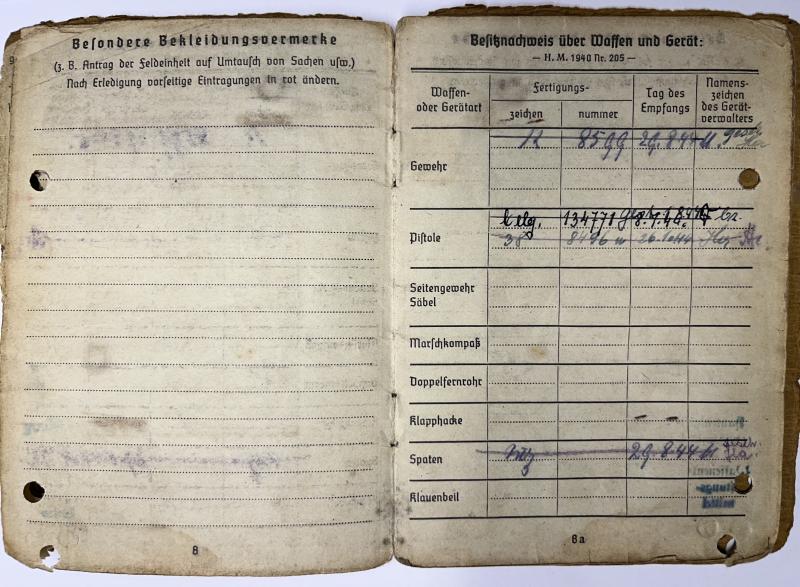 Besondere Bekleidungsvermerke
(z. B. Antrag der Feldeinheit auf Umtausch von Sachen usw.)
Nach Erledigung vorseitige Eintragungen in rot ändern.
8
Besitznachweis über Waffen und Gerät:
— H. M. 1940 Nr. 205 —
Waffen- oder Geräteart
Fertigungs-
zeichen
nummer
Tag des Empfangs
Namens-zeichen des Gerät-verwalters
Gewehr
8599 29.8.44
Pistole
belg. 134771
38 8496
Seitengewehr
Säbel
Marschkompaß
Doppelfernrohr
Klapphacke
Spaten 29.8.44
Klauenbeil
8a